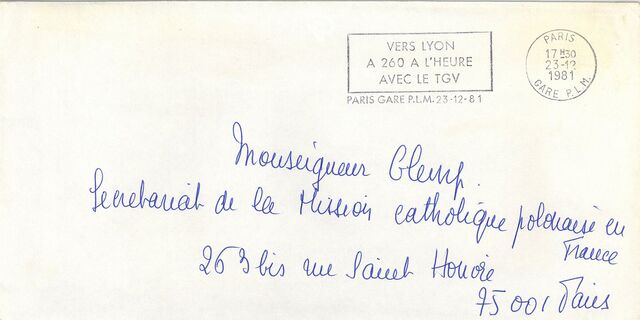 VERS LYON
A 260 A L'HEURE
AVEC LE TGV
PARIS GARE P.L.M. 23-12-81
PARIS
17 H30
23-12
1981
GARE P.L.M.
Monseigneur Glemp.
Secretariat de la Mission catholique polonaise en
France
263 bis rue Saint Honoré
75001 Paris